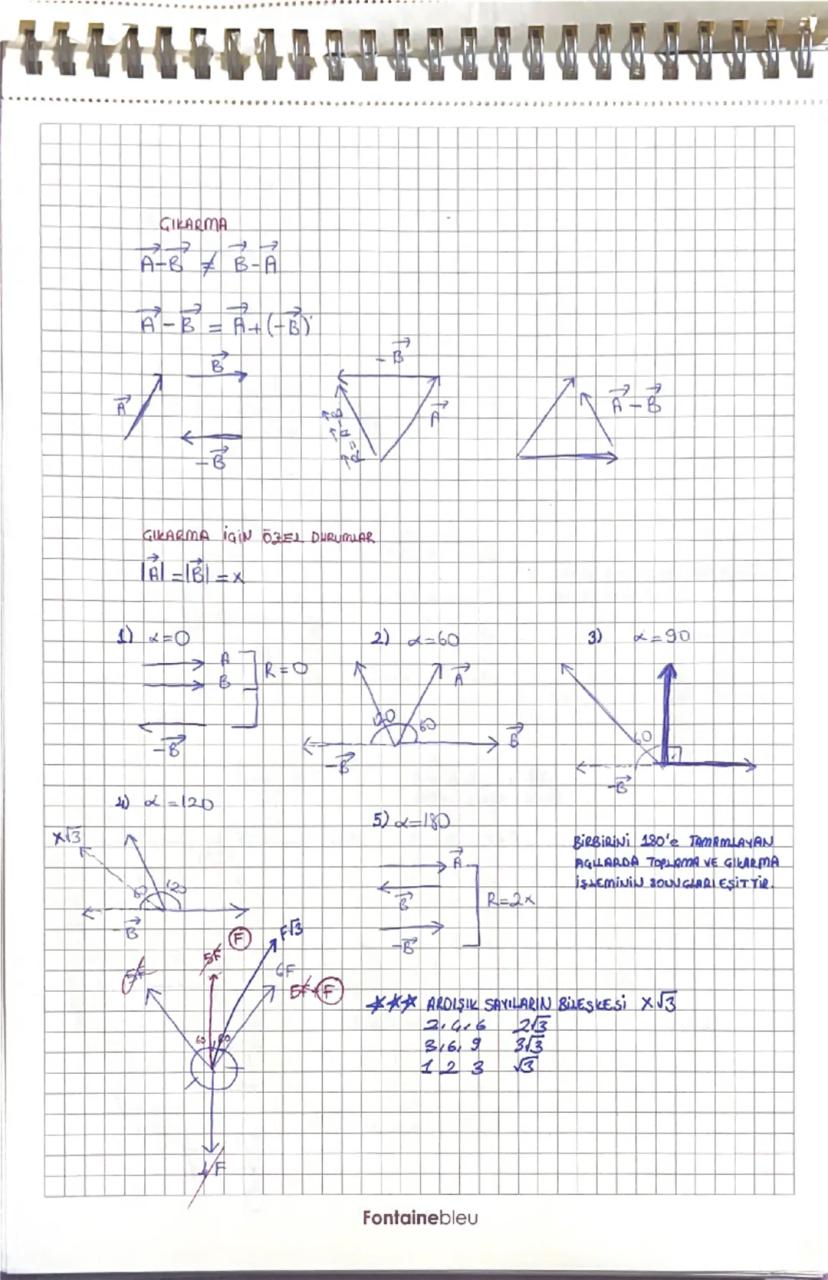 ÇIKARMA
A-B ≠ B-A
A-B = A+(-B)
B
-B
A
A
A-B
-B
R=A-B
ÇIKARMA İÇİN ÖZEL DURUMLAR
|A|=|B|=x
1) α=0
2) α=60
3) α=90
A
B
R=0
-B
A
120
60
B
-B
60
-B
4) α=120
5) α=180
x√3
60
120
-B
A
B
-B
R=2x
BİRBİRİNİ 180'e TAMAMLAYAN
AÇILARDA TOPLAMA VE ÇIKARMA
İŞLEMİNİN SONUÇLARI EŞİTTİR.
5F
5F
F
F√3
6F
5F+F
60
60
4F
*** ARDIŞIK SAYILARIN BİLEŞKESİ x√3
2, 4, 6 2√3
3, 6, 9 3√3
1 2 3 √3
Fontainebleu